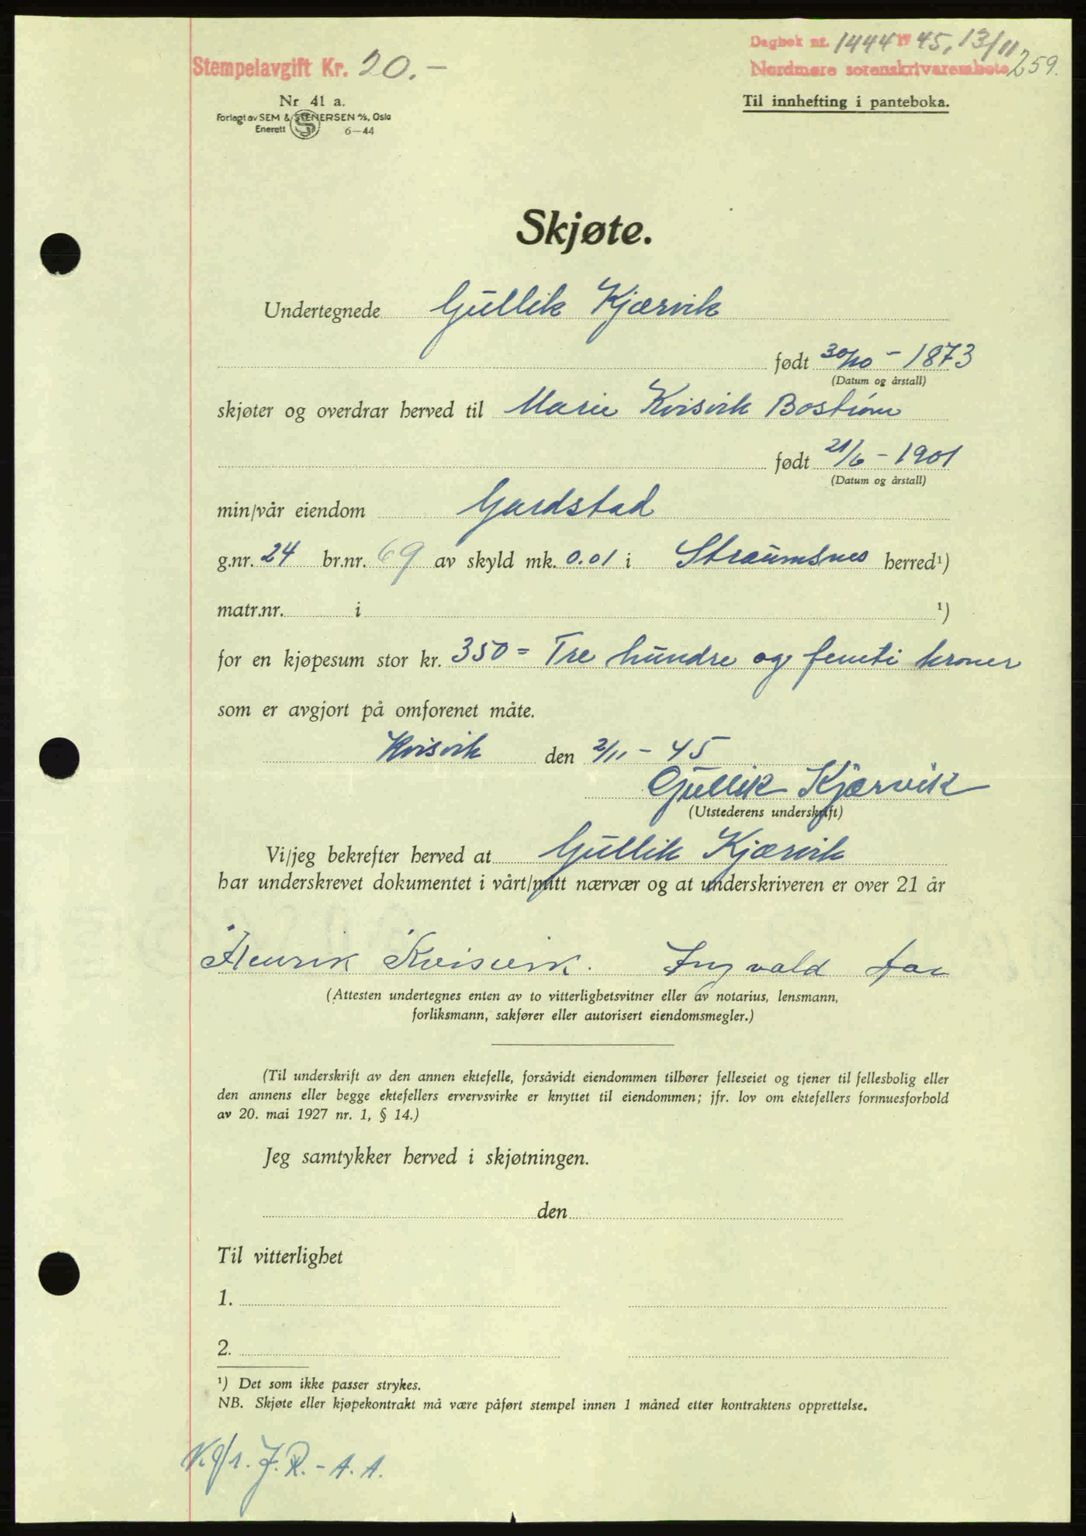 Stempelavgift Kr. 20.-
Dagbok nr. 1444 19 45, 13/11
Nordmøre sorenskriverembete 259.
Nr 41 a.
Forlagt av SEM & STENERSEN A/S, Oslo
Enerett 6-44
Til innhefting i panteboka.
Skjøte.
Undertegnede Gullik Kjærvik
født 30/10 - 1873
(Datum og årstall)
skjøter og overdrar herved til Marie Kvisvik Bostrøm
født 21/6 - 1901
(Datum og årstall)
min/vår eiendom Gardstad
g.nr. 24 br.nr. 69 av skyld mk. 0.01 i Straumsnes herred¹)
matr.nr. i ¹)
for en kjøpesum stor kr. 350= Tre hundre og femti kroner
som er avgjort på omforenet måte.
Kvisvik den 2/11 - 45
Gullik Kjærvik
(Utstederens underskrift)
Vi/jeg bekrefter herved at Gullik Kjærvik
har underskrevet dokumentet i vårt/mitt nærvær og at underskriveren er over 21 år
Henrik Kvisvik. Ingvald Aas
(Attesten undertegnes enten av to vitterlighetsvitner eller av notarius, lensmann,
forliksmann, sakfører eller autorisert eiendomsmegler.)
(Til underskrift av den annen ektefelle, forsåvidt eiendommen tilhører felleseiet og tjener til fellesbolig eller
den annens eller begge ektefellers ervervsvirke er knyttet til eiendommen; jfr. lov om ektefellers formuesforhold
av 20. mai 1927 nr. 1, § 14.)
Jeg samtykker herved i skjøtningen.
den
Til vitterlighet
1.
2.
¹) Det som ikke passer strykes.
NB. Skjøte eller kjøpekontrakt må være påført stempel innen 1 måned etter kontraktens opprettelse.
J.R. - A.A.